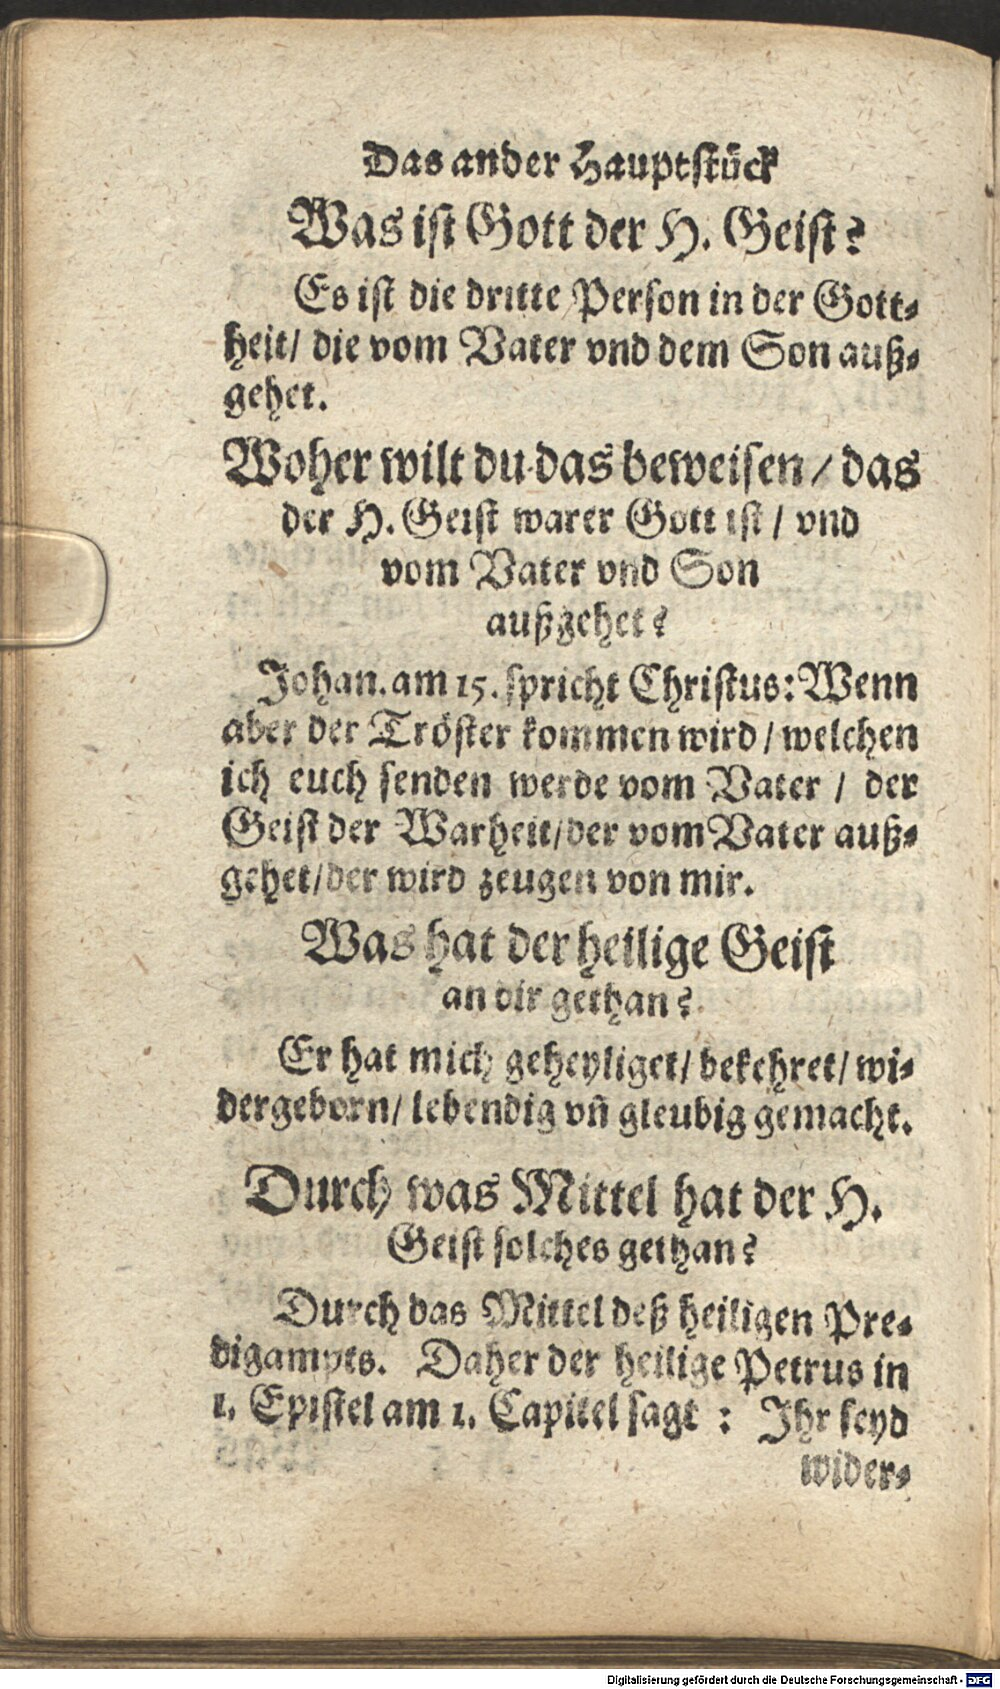 Das ander Hauptstück
Was ist Gott der H. Geist?
Es ist die dritte Person in der Gott-
heit/ die vom Vater vnd dem Son auß-
gehet.
Woher wilt du das beweisen / das
der H. Geist warer Gott ist / vnd
vom Vater vnd Son
außgehet?
Johan. am 15. spricht Christus: Wenn
aber der Tröster kommen wird / welchen
ich euch senden werde vom Vater / der
Geist der Warheit/ der vom Vater auß-
gehet/ der wird zeugen von mir.
Was hat der heilige Geist
an dir gethan?
Er hat mich geheyliget/ bekehret/ wi-
dergeborn/ lebendig vñ gleubig gemacht.
Durch was Mittel hat der H.
Geist solches gethan?
Durch das Mittel deß heiligen Pre-
digampts. Daher der heilige Petrus in
1. Epistel am 1. Capitel sagt : Ihr seyd
wider-
Digitalisierung gefördert durch die Deutsche Forschungsgemeinschaft - DFG